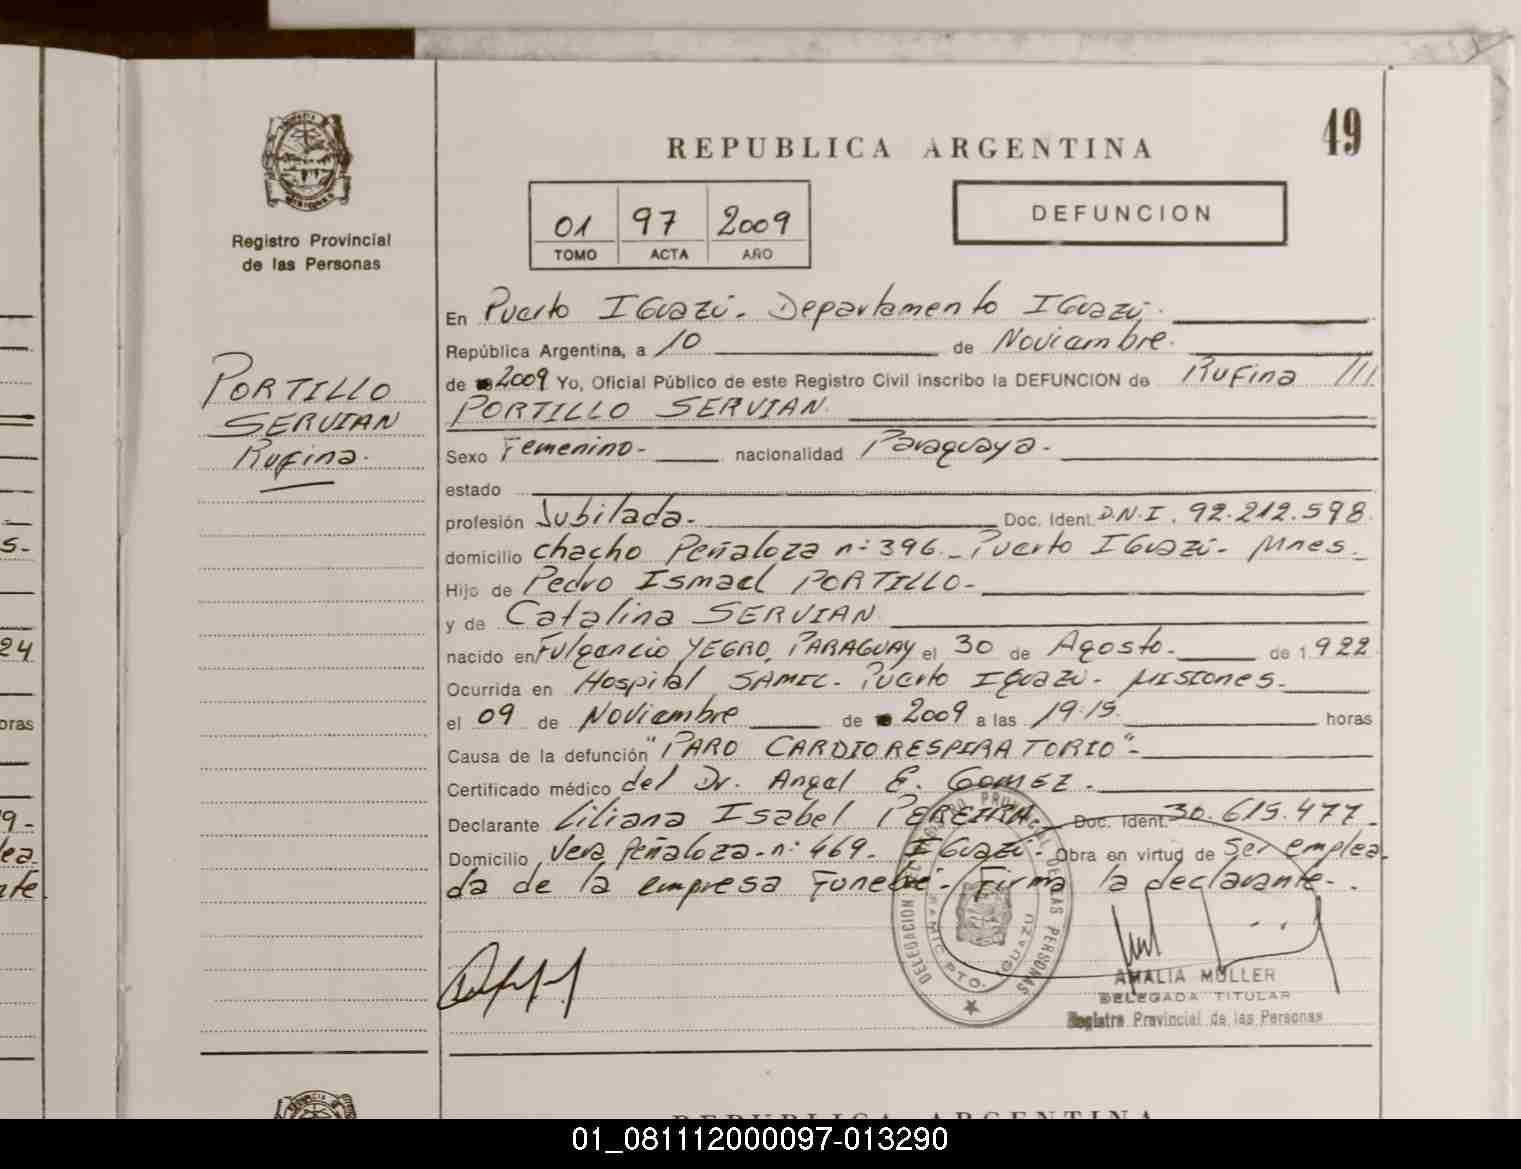 49
REPUBLICA ARGENTINA
01 97 2009
TOMO ACTA AÑO
DEFUNCION
Registro Provincial
de las Personas
PORTILLO
SERVIAN
Rufina.
En Puerto IGuazú. Departamento IGuazú.
República Argentina, a 10 de Noviembre.
de 2009 Yo, Oficial Público de este Registro Civil inscribo la DEFUNCION de Rufina
PORTILLO SERVIAN.
Sexo Femenino- nacionalidad Paraguaya-
estado
profesión Jubilada- Doc. Ident. D.N.I. 92.212.598.
domicilio chacho Peñaloza n: 396.- Puerto IGuazú- Mnes.
Hijo de Pedro Ismael PORTILLO-
y de Catalina SERVIAN
nacido en Fulgencio YEGRO, PARAGUAY el 30 de Agosto- de 1.922
Ocurrida en Hospital SAMIC- Puerto IGuazú- MISIONES-
el 09 de Noviembre de 2009 a las 19:15 horas
Causa de la defunción "PARO CARDIORESPIRATORIO"-
Certificado médico del Dr. Angel E. GOMEZ.
Declarante Liliana Isabel PEREIRA Doc. Ident. 30.615.477-
Domicilio Vera Peñaloza-n: 469- IGuazú- Obra en virtud de Ser emplea-
da de la empresa Funebre- Firma la declarante-.
DELEGACION REGISTRO PROVINCIAL DE LAS PERSONAS
RAMIC PTO. IGUAZU
AMALIA MULLER
DELEGADA TITULAR
Registro Provincial de las Personas
24
oras
REPUBLICA ARGENTINA
01_081112000097-013290